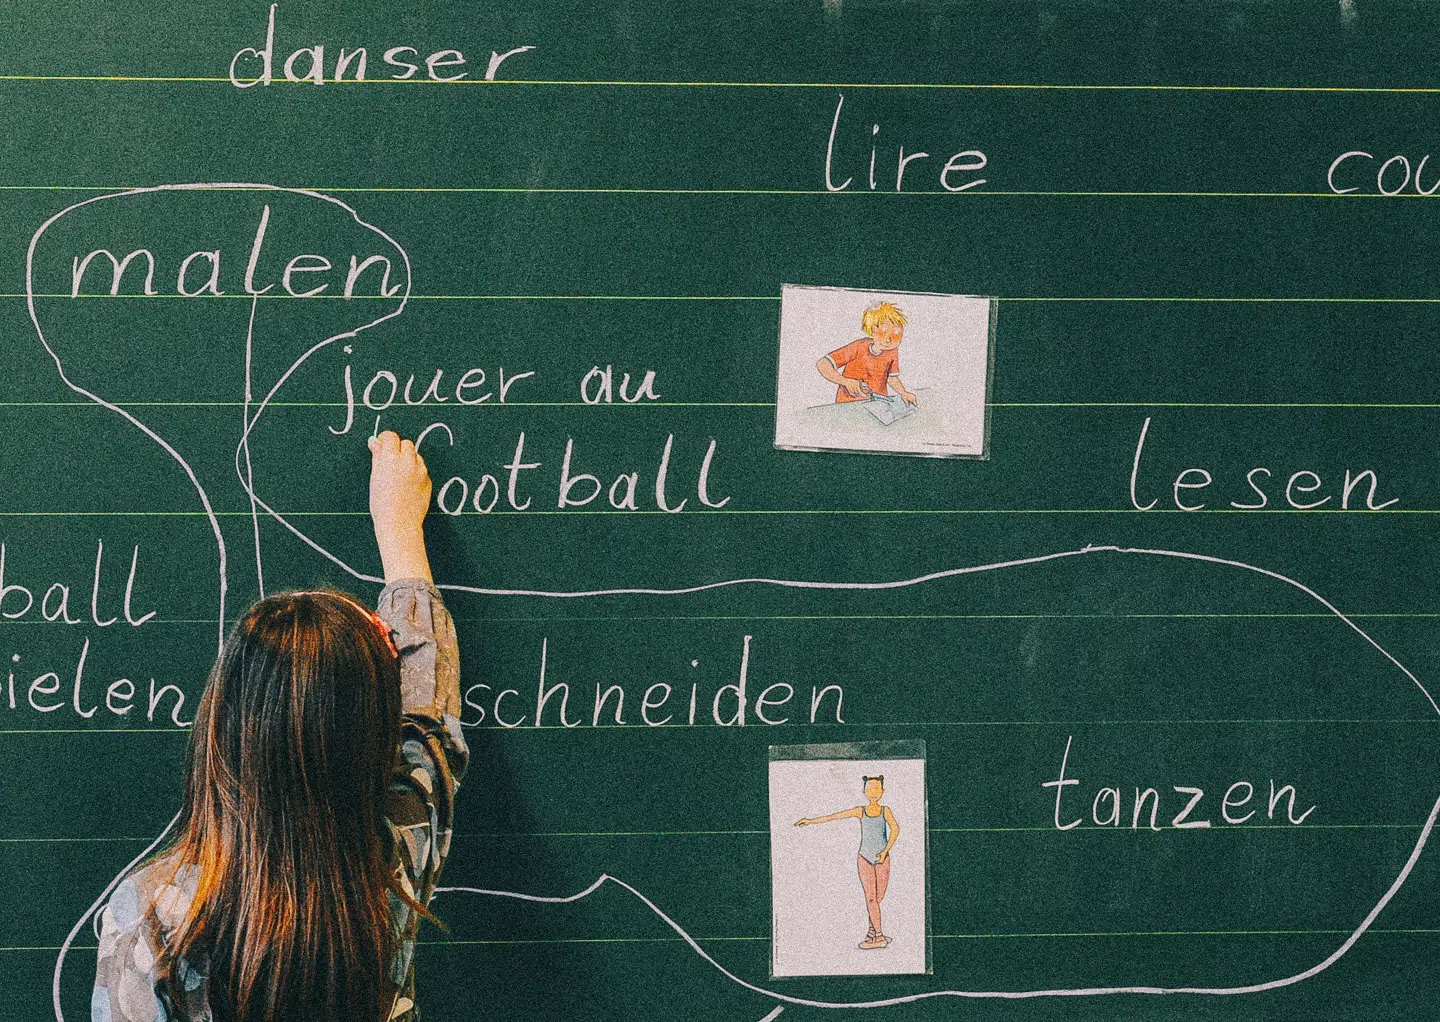 danser
lire
cou
malen
jouer au
football
lesen
ball
ielen
schneiden
tanzen